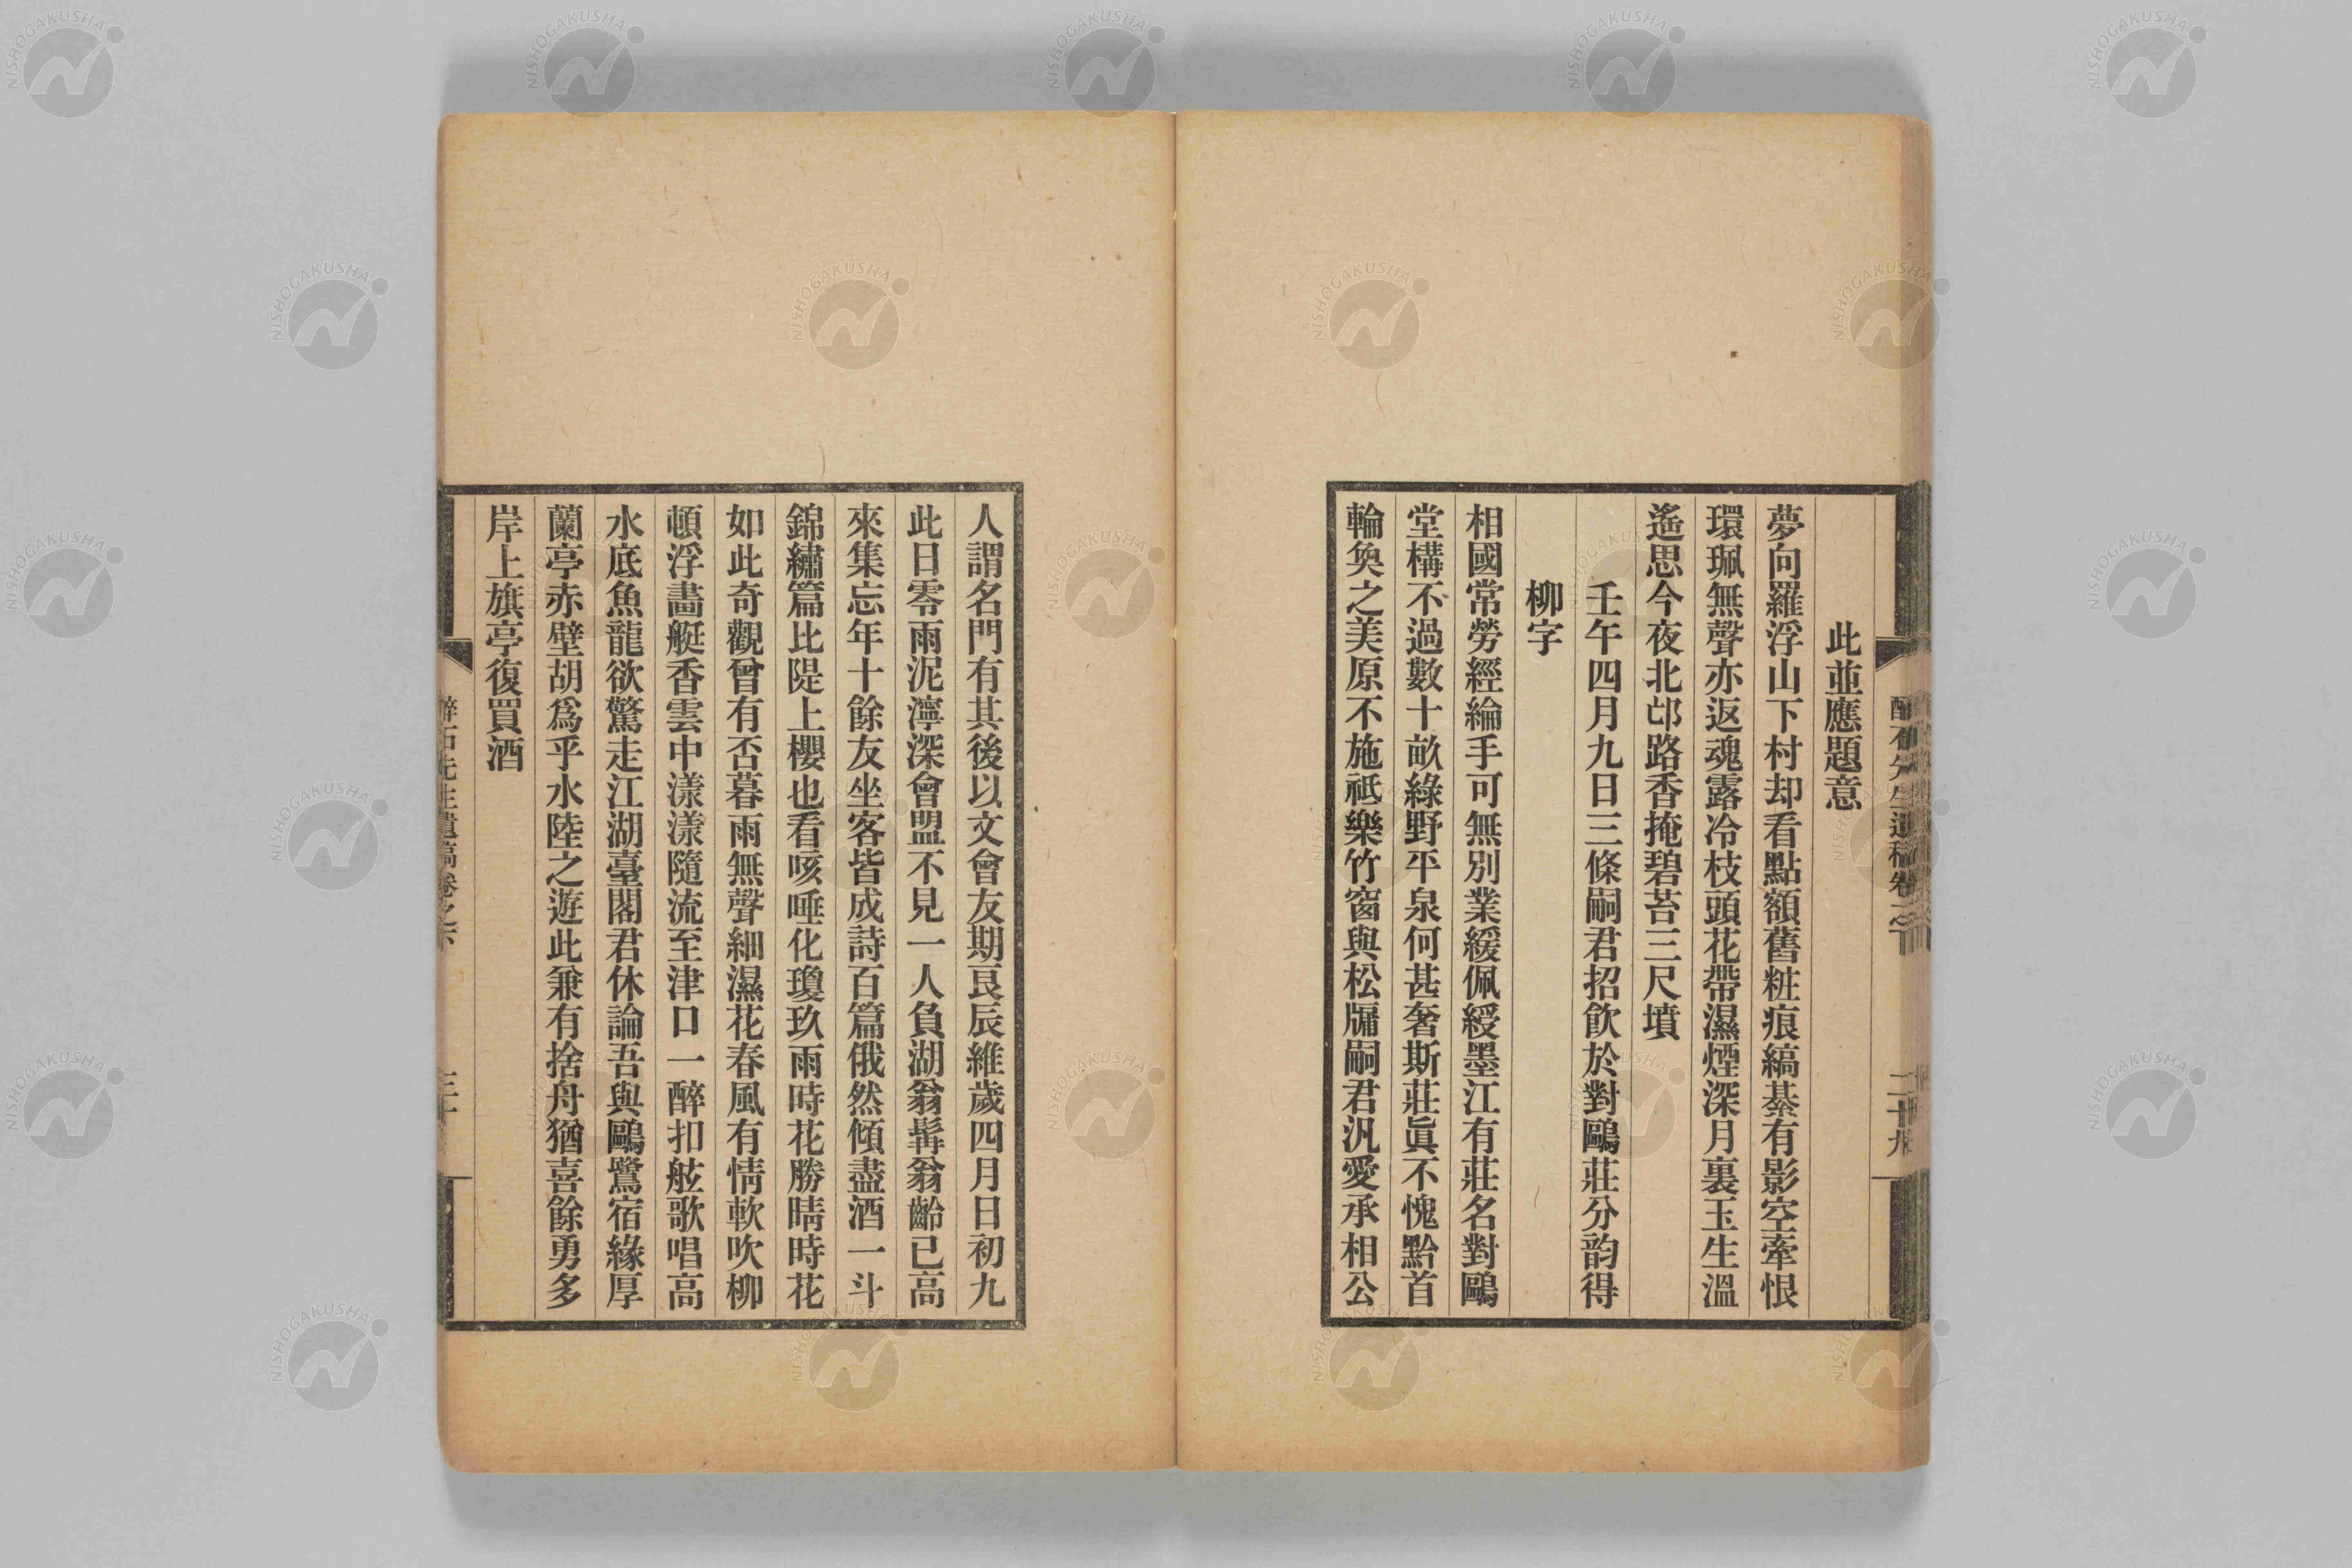 此並應題意
夢向羅浮山下村却看點額舊粧痕縞綦有影空牽恨
環珮無聲亦返魂露冷枝頭花帶濕煙深月裏玉生溫
遙思今夜北邙路香掩碧苔三尺墳
壬午四月九日三條嗣君招飮於對鷗莊分韵得
柳字
相國常勞經綸手可無別業緩佩綬墨江有莊名對鷗
堂構不過數十畝綠野平泉何甚奢斯莊眞不愧黔首
輪奐之美原不施祗樂竹窗與松牖嗣君汎愛承相公
人謂名門有其後以文會友期良辰維歲四月日初九
此日零雨泥濘深會盟不見一人負湖翁髯翁齡已高
來集忘年十餘友坐客皆成詩百篇俄然傾盡酒一斗
錦繡篇比隄上櫻也看咳唾化瓊玖雨時花勝晴時花
如此奇觀曾有否暮雨無聲細濕花春風有情軟吹柳
頓浮畵艇香雲中漾漾隨流至津口一醉扣舷歌唱高
水底魚龍欲驚走江湖臺閣君休論吾與鷗鷺宿緣厚
蘭亭赤壁胡爲乎水陸之遊此兼有捨舟猶喜餘勇多
岸上旗亭復買酒
醉石先生遺稿卷之下
三十
NISHOGAKUSHA